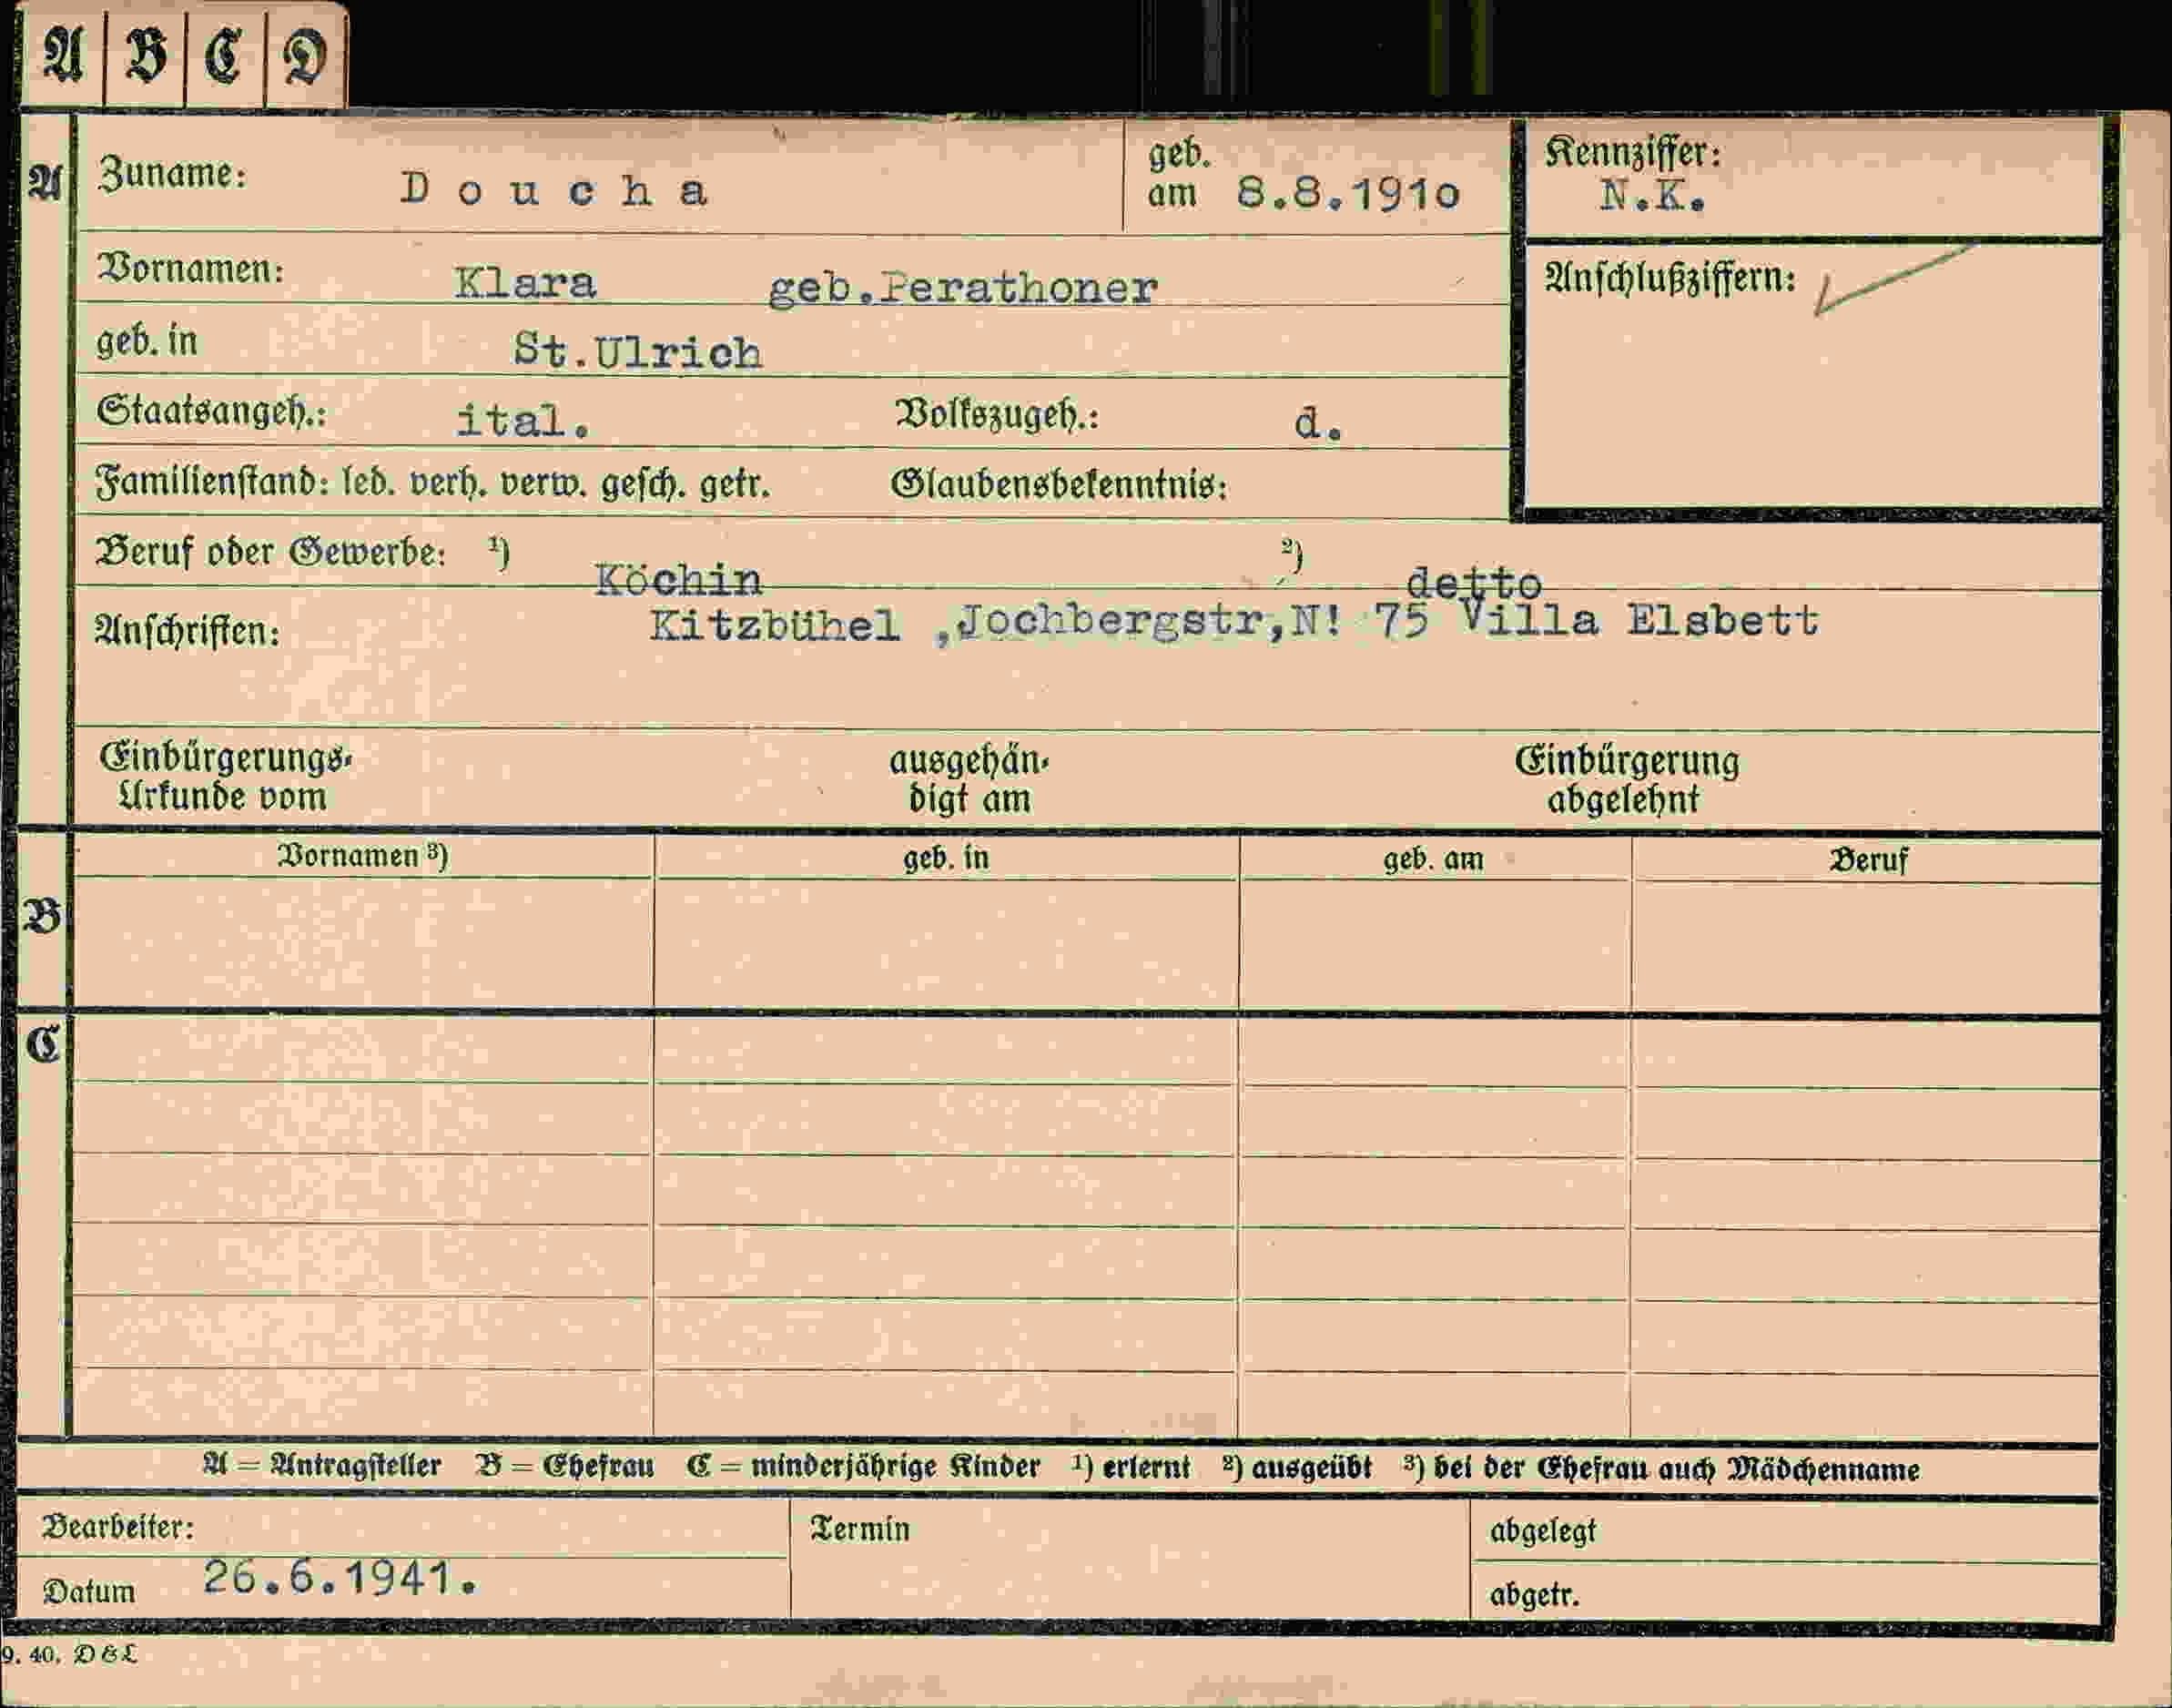 A B C D
A Zuname: Doucha geb. am 8.8.191o Kennziffer: N.K.
Vornamen: Klara geb.Perathoner Anschlußziffern:
geb. in St.Ulrich
Staatsangeh.: ital. Volkszugeh.: d.
Familienstand: led. verh. verw. gesch. getr. Glaubensbekenntnis:
Beruf oder Gewerbe: ¹) Köchin ²) detto
Anschriften: Kitzbühel ,Jochbergstr,N! 75 Villa Elsbett
Einbürgerungs- ausgehän- Einbürgerung
Urkunde vom digt am abgelehnt
Vornamen ³) geb. in geb. am Beruf
B
C
A = Antragsteller B = Ehefrau C = minderjährige Kinder ¹) erlernt ²) ausgeübt ³) bei der Ehefrau auch Mädchenname
Bearbeiter: Termin abgelegt
Datum 26.6.1941. abgetr.
9. 40. D & L